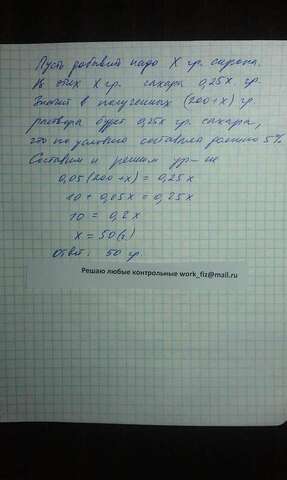 Пусть добавить надо X гр. сиропа.
Из этих X гр. сахара 0,25x гр.
Значит в полученных (200+x) гр.
раствора будет 0,25x гр. сахара,
это по условию составлять должно 5%
Составим и решим ур-ие
0,05(200+x) = 0,25x
10 + 0,05x = 0,25x
10 = 0,2x
x = 50(г)
Ответ: 50 гр.
Решаю любые контрольные work_fiz@mail.ru